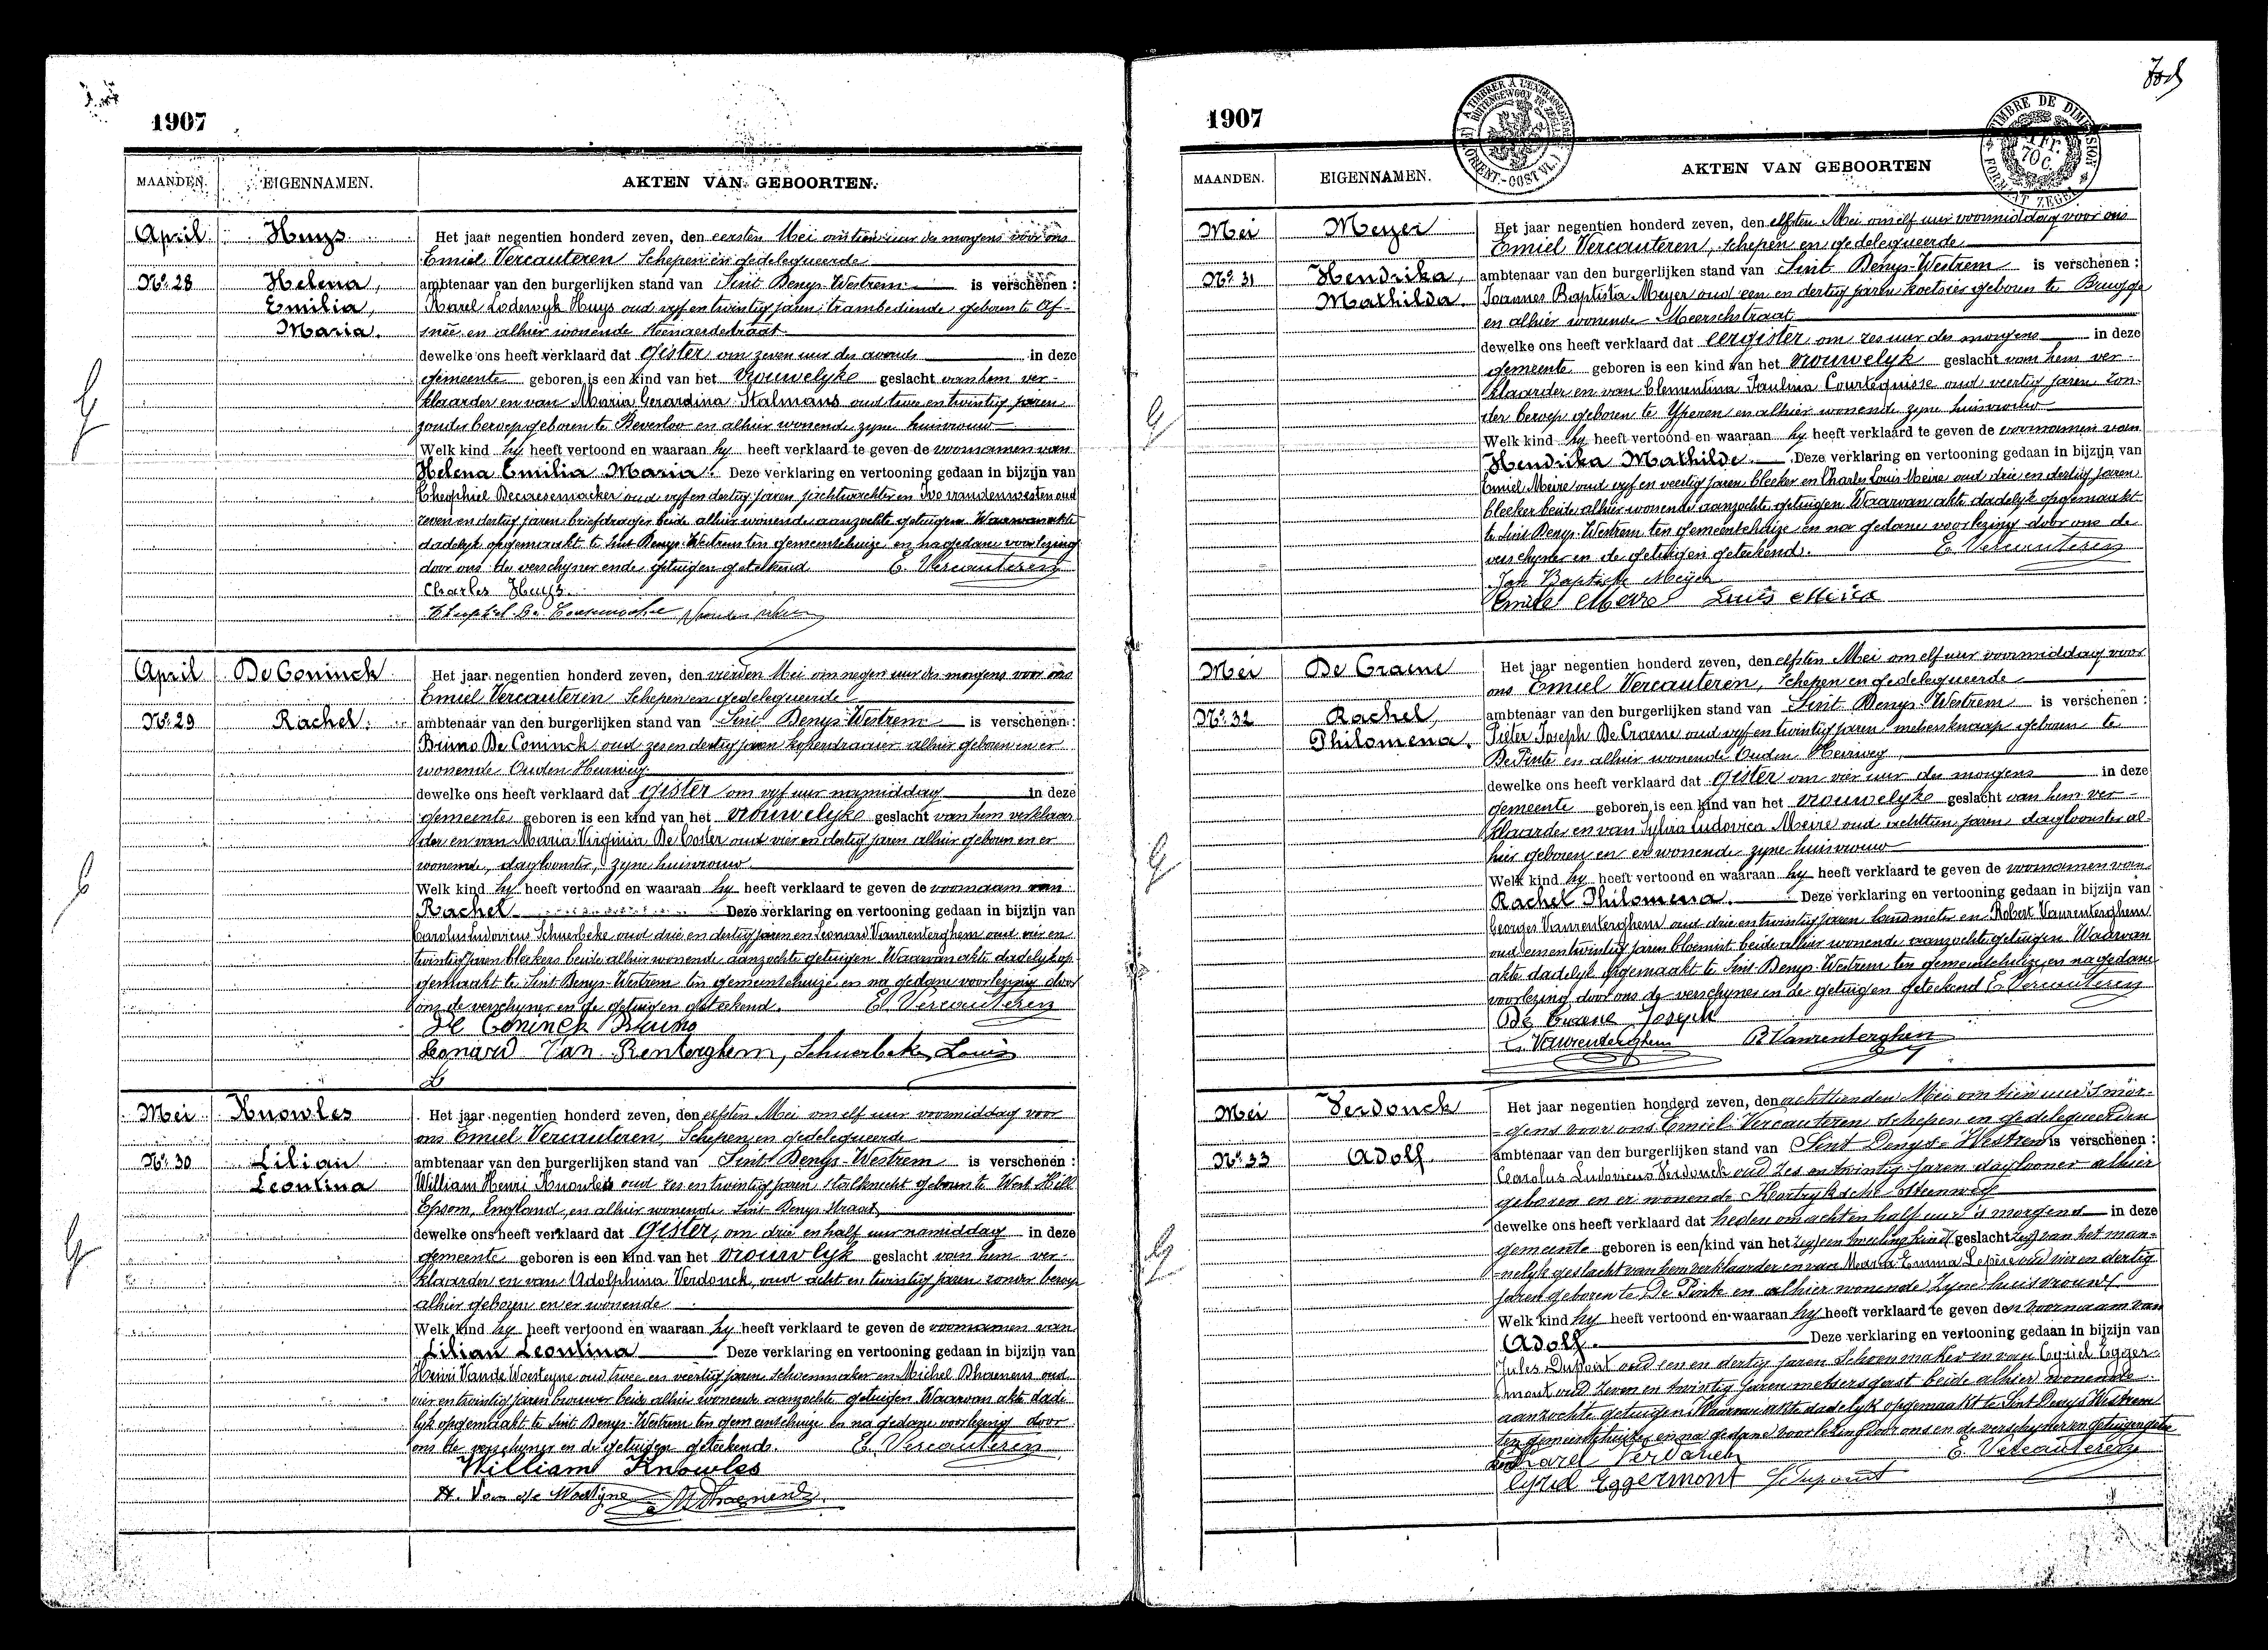 1907
MAANDEN. EIGENNAMEN. AKTEN VAN GEBOORTEN.
April Huys Het jaar negentien honderd zeven, den eersten Mei om tien uur des morgens voor ons
Emiel Vercauteren Schepen en gedelegueerde
No. 28 Helena, ambtenaar van den burgerlijken stand van Sint Denys-Westrem is verschenen :
Emilia, Karel Lodewyk Huys oud vyf en twintig jaren, trambediende, geboren te Af-
Maria. snee en alhier wonende Steenaerdestraat
dewelke ons heeft verklaard dat gister om zeven uur des avonds in deze
gemeente geboren is een kind van het vrouwelyke geslacht van hem ver-
klaarder en van Maria Gerardina Stalmans oud twee en twintig jaren
zonder beroep geboren te Beverloo en alhier wonende zyne huisvrouw
Welk kind hy heeft vertoond en waaraan hy heeft verklaard te geven de voornamen van
Helena Emilia Maria. Deze verklaring en vertooning gedaan in bijzijn van
Theophiel oud vyf en dertig jaren jachtwachter en Ivo vandenwesten oud
zeven en dertig jaren briefdrager beide alhier wonende aanzochte getuigen. Waarvan akte
dadelyk opgemaakt te Sint Denys-Westrem ten gemeentehuize, en na gedane voorlezing
door ons de verschyner en de getuigen geteekend E. Vercauteren
Charles Huys.
April De Coninck Het jaar negentien honderd zeven, den vierden Mei om negen uur des morgens voor ons
Emiel Vercauteren Schepen en gedelegueerde
No. 29 Rachel. ambtenaar van den burgerlijken stand van Sint Denys-Westrem is verschenen :
Bruno De Coninck oud zes en dertig jaren alhier geboren en er
wonende Ouden Heirweg
dewelke ons heeft verklaard dat gister om vyf uur namiddag in deze
gemeente geboren is een kind van het vrouwelyke geslacht van hem verklaar-
der en van Maria Virginia De Coster oud vier en dertig jaren alhier geboren en er
wonende, dagloonster, zyne huisvrouw
Welk kind hy heeft vertoond en waaraan hy heeft verklaard te geven de voornaam van
Rachel Deze verklaring en vertooning gedaan in bijzijn van
Carolus Ludovicus Schuerbeke oud drie en dertig jaren en Leonard Vanrenterghem oud vier en
twintig jaren bleekers beide alhier wonende aanzochte getuigen Waarvan akte dadelyk op-
gemaakt te Sint Denys-Westrem ten gemeentehuize en na gedane voorlezing door
ons de verschyner en de getuigen geteekend. E. Vercauteren
De Coninck Bruno
Leonard Van Renterghem, Schuerbeke Louis
Mei Knowles Het jaar negentien honderd zeven, den elfsten Mei om elf uur voormiddag voor
ons Emiel Vercauteren, Schepen en gedelegueerde
No. 30 Lilian ambtenaar van den burgerlijken stand van Sint Denys-Westrem is verschenen :
Leontina William Henri Knowles oud zes en twintig jaren, stalknecht geboren te West Hill
Epsom, England, en alhier wonende Sint Denys Straat
dewelke ons heeft verklaard dat gister, om drie en half uur namiddag in deze
gemeente geboren is een kind van het vrouwlyk geslacht van hem ver-
klaarder en van Adolphina Verdonck, oud acht en twintig jaren zonder beroep
alhier geboren en er wonende
Welk kind hy heeft vertoond en waaraan hy heeft verklaard te geven de voornamen van
Lilian Leontina Deze verklaring en vertooning gedaan in bijzijn van
Henri Vande Woesteyne oud twee en veertig jaren schoenmaker en Michel Dhaenens oud
vier en twintig jaren brouwer beide alhier wonende aanzochte getuigen Waarvan akte dade-
lyk opgemaakt te Sint Denys-Westrem ten gemeentehuize en na gedane voorlezing door
ons de verschyner en de getuigen geteekend. E. Vercauteren
William Knowles
H. Van de Woestyne M Dhaenens
1907
MAANDEN. EIGENNAMEN. AKTEN VAN GEBOORTEN
TIMBRE DE DIMENSION 1 Fr. 70 C. FORMAAT ZEGEL
Mei Meyer Het jaar negentien honderd zeven, den elfsten Mei om elf uur voormiddag voor ons
Emiel Vercauteren, schepen en gedelegueerde
No. 31 Hendrika, ambtenaar van den burgerlijken stand van Sint Denys-Westrem is verschenen :
Mathilda Joannes Baptista Meyer oud een en dertig jaren koetsier geboren te Brugge
en alhier wonende Meerschstraat
dewelke ons heeft verklaard dat eergister om zes uur des morgens in deze
gemeente geboren is een kind van het vrouwelyk geslacht van hem ver-
klaarder en van Clementina Paulina Courtequisse oud veertig jaren zon-
der beroep geboren te Yperen en alhier wonende zyne huisvrouw
Welk kind hy heeft vertoond en waaraan hy heeft verklaard te geven de voornamen van
Hendrika Mathilde Deze verklaring en vertooning gedaan in bijzijn van
Emiel Meire oud vyf en veertig jaren bleeker en Charles Louis Meire oud drie en dertig jaren
bleeker beide alhier wonende aanzochte getuigen Waarvan akte dadelyk opgemaakt
te Sint Denys-Westrem ten gemeentehuize en na gedane voorlezing door ons de
verschyner en de getuigen geteekend. E. Vercauteren
Jan Baptiste Meyer
Emile Meire Louis Meire
Mei De Craene Het jaar negentien honderd zeven, den elfsten Mei om elf uur voormiddag voor
ons Emiel Vercauteren, Schepen en gedelegueerde
No. 32 Rachel, ambtenaar van den burgerlijken stand van Sint Denys-Westrem is verschenen :
Philomena. Pieter Joseph De Craene oud vyf en twintig jaren, metserknaap geboren te
De Pinte en alhier wonende Ouden Heirweg
dewelke ons heeft verklaard dat gister om vier uur des morgens in deze
gemeente geboren is een kind van het vrouwelyke geslacht van hem ver-
klaarder en van Sylvia Ludovica Meire oud achttien jaren, dagloonster al-
hier geboren en er wonende zyne huisvrouw
Welk kind hy heeft vertoond en waaraan hy heeft verklaard te geven de voornamen van
Rachel Philomena. Deze verklaring en vertooning gedaan in bijzijn van
Georges Vanrenterghem oud drie en twintig jaren landmeter en Robert Vanrenterghem
oud een en twintig jaren bloemist beide alhier wonende aanzochte getuigen. Waarvan
akte dadelyk opgemaakt te Sint-Denys-Westrem ten gemeentehuize en na gedane
voorlezing door ons de verschyner en de getuigen geteekend E. Vercauteren
De Craene Joseph
Vanrenterghem R Vanrenterghem
Mei Verdonck Het jaar negentien honderd zeven, den achttienden Mei om tien uur 's mor-
gens voor ons Emiel Vercauteren, schepen en gedelegueerden
No. 33 Adolf. ambtenaar van den burgerlijken stand van Sint Denys-Westrem is verschenen :
Carolus Ludovicus Verdonck oud zes en twintig jaren daglooner alhier
geboren en er wonende Kortryksche steenweg
dewelke ons heeft verklaard dat heden om acht en half uur 's morgens in deze
gemeente geboren is een kind van het geslacht van het man-
nelyk geslacht van hem verklaarder en van Maria Emma oud vier en dertig
jaren geboren te De Pinte en alhier wonende zyne huisvrouw
Welk kind hy heeft vertoond en waaraan hy heeft verklaard te geven den voornaam van
Adolf. Deze verklaring en vertooning gedaan in bijzijn van
Jules Dupont oud een en dertig jaren Schoenmaker en van Cyriel Egger-
mont oud zeven en twintig jaren metsersgast beide alhier wonende
aanzochte getuigen. Waarvan akte dadelyk opgemaakt te Sint Denys Westrem
ten gemeentehuize en na gedane voorlezing door ons en de verschyner en getuigen getee-
kend Karel Verdonck E. Vercauteren
Cyriel Eggermont J. Dupont